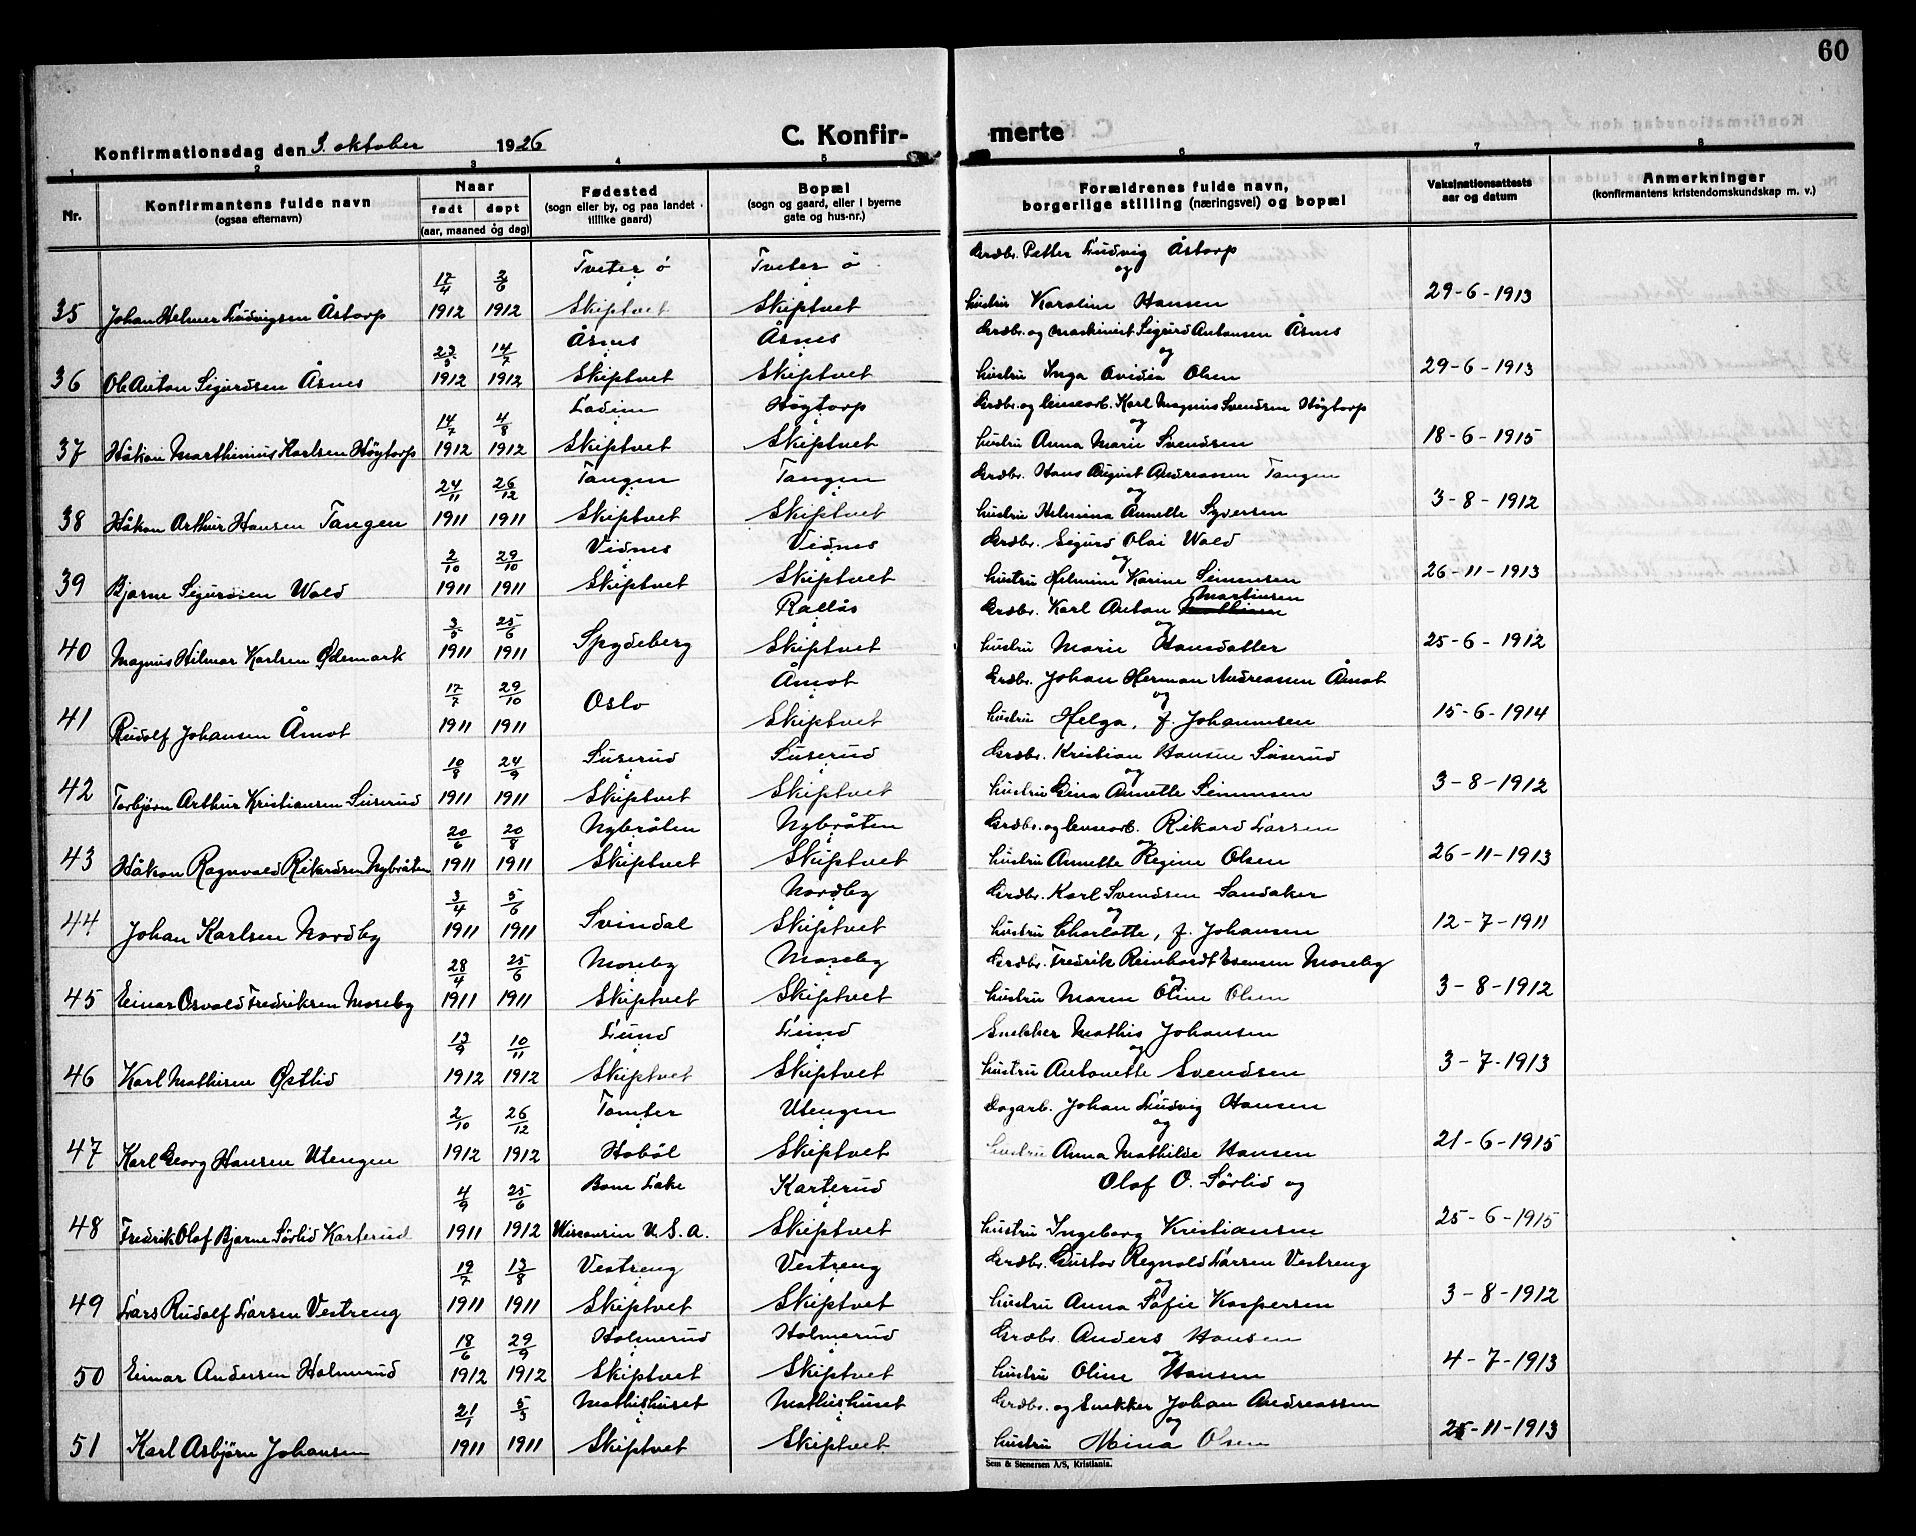 60
Konfirmationsdag den 3. oktober 1926
C. Konfirmerte
1 2 3 4 5 6 7 8
Nr.
Konfirmantens fulde navn
(ogsaa efternavn)
Naar
født døpt
(aar, maaned og dag)
Fødested
(sogn eller by, og paa landet
tillike gaard)
Bopæl
(sogn og gaard, eller i byerne
gate og hus-nr.)
Forældrenes fulde navn,
borgerlige stilling (næringsvei) og bopæl
Vaksinationsattests
aar og datum
Anmerkninger
(konfirmantens kristendomskundskap m. v.)
17/4 2/6 Tveter ö Tveter ö Grdbr. Petter Ludvig Åstorp
og
35 Johan Helmer Ludvigsen Åstorp 1912 1912 Skiptvet Skiptvet hustru Karoline Hansen 29-6-1913
23/3 14/7 Åsnes Åsnes Grdbr. og maskinist Sigurd Antonsen Åsnes
og
36 Ole Anton Sigurdsen Åsnes 1912 1912 Skiptvet Skiptvet hustru Inga Ovidia Olsen 29-6-1913
14/7 4/8 Ladim Høgtorp Grdbr. og Karl Magnus Svendsen Högtorp
og
37 Håkon Marthinius Karlsen Höytorp 1912 1912 Skiptvet Skiptvet hustru Anna Marie Svendsen 18-6-1915
24/11 26/12 Tangen Tangen Grdbr. Hans August Andreassen Tangen
og
38 Håkon Arthur Hansen Tangen 1911 1911 Skiptvet Skiptvet hustru Helmina Annette Syversen 3-8-1912
2/10 29/10 Vidnes Vidnes Grdbr. Sigurd Olai Wold
og
39 Bjarne Sigurdsen Wold 1911 1911 Skiptvet Skiptvet hustru Helmine Karine Simensen 26-11-1913
Martinsen
3/5 25/6 Rallås Grdbr. Karl Anton Mathisen
og
40 Magnus Hilmar Karlsen Ødemark 1911 1911 Spydeberg Skiptvet hustru Marie Hansdatter 25-6-1912
17/7 29/10 Åmot Grdbr. Johan Herman Andreassen Åmot
og
41 Rudolf Johansen Åmot 1911 1911 Oslo Skiptvet hustru Helga, f. Johannesen 15-6-1914
10/8 24/9 Suserud Suserud Grdbr. Kristian Hansen Suserud
og
42 Torbjørn Arthur Kristiansen Suserud 1911 1911 Skiptvet Skiptvet hustru Gina Annette Simensen 3-8-1912
20/6 20/8 Nybråten Nybråten Grdbr. og Rikard Larsen
og
43 Håkon Ragnvald Rikardsen Nybråten 1911 1911 Skiptvet Skiptvet hustru Annette Regine Olsen 26-11-1913
3/4 5/6 Nordby Grdbr. Karl Svendsen Sandaker
og
44 Johan Karlsen Nordby 1911 1911 Svindal Skiptvet hustru Charlotte, f. Johansen 12-7-1911
28/4 25/6 Moseby Moseby Grdbr. Fredrik Reinhardt Evensen Moseby
og
45 Einar Osvald Fredriksen Moseby 1911 1911 Skiptvet Skiptvet hustru Maren Oline Olsen 3-8-1912
13/9 10/11 Lund Lund Snekker Mathis Johansen
og
46 Karl Mathisen Østlid 1912 1912 Skiptvet Skiptvet hustru Antonette Svendsen 3-7-1913
2/10 26/12 Tomter Utengen Dagarb. Johan Ludvig Hansen
og
47 Karl Georg Hansen Utengen 1912 1912 Hobøl Skiptvet hustru Anna Mathilde Hansen 21-6-1915
4/9 25/6 Bone Lake Karterud Olaf O. Sørlid og
48 Fredrik Olaf Bjarne Sørlid Karterud 1911 1912 Wisconsin U.S.A. Skiptvet hustru Ingeborg Kristiansen 25-6-1915
19/7 13/8 Vestreng Vestreng Grdbr. Gustav Regnald Larsen Vestreng
og
49 Lars Rudolf Larsen Vestreng 1911 1911 Skiptvet Skiptvet hustru Anna Sofie Kaspersen 3-8-1912
18/6 29/9 Holmerud Holmerud Grdbr. Anders Hansen
og
50 Einar Andersen Holmerud 1912 1912 Skiptvet Skiptvet hustru Oline Hansen 4-7-1913
21/1 5/3 Mathishuset Mathishuset Grdbr. og Snekker Johan Andreassen
og
51 Karl Asbjørn Johansen 1911 1911 Skiptvet Skiptvet hustru Mina Olsen 25-11-1913
Sem & Stenersen A/S, Kristiania.